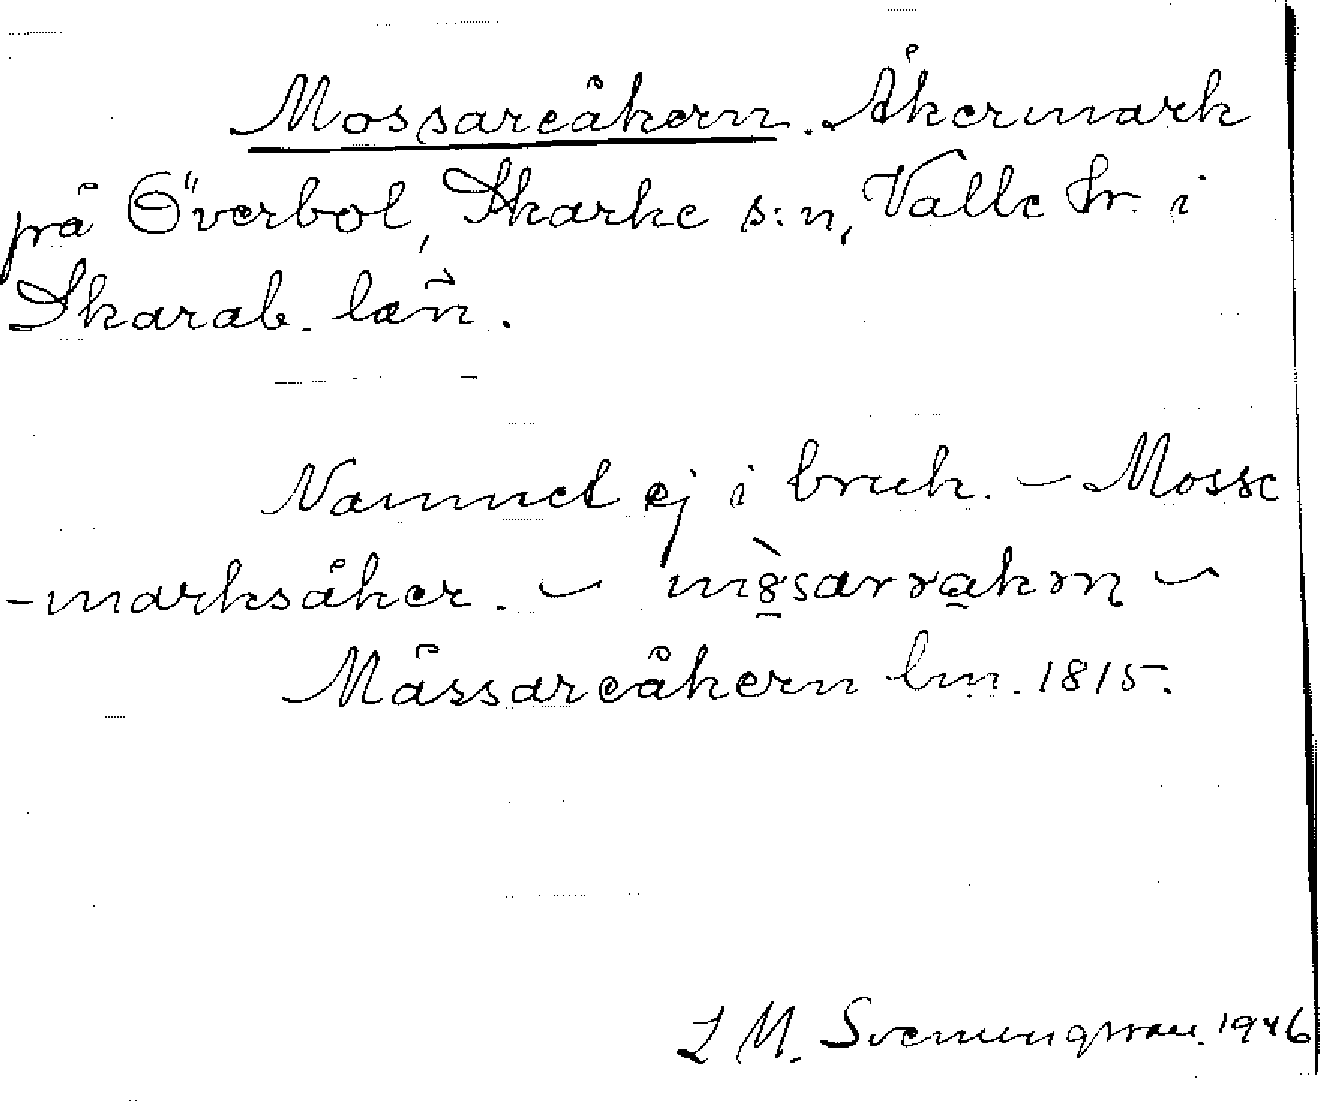 Mossareåkern. Åkermark
på Överbol, Skarke s:n, Valle hr. i
Skarab. län.
Namnet ej i bruk. – Mosse
-marksåker. –
Måssareåkern lm. 1815.
L M. Svenungsson. 1946